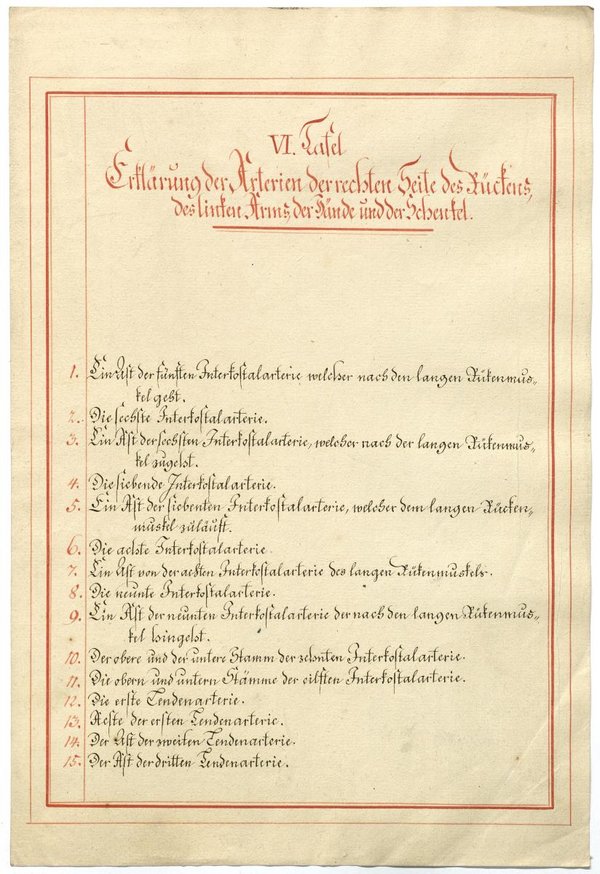 VI. Tafel
Erklärung der Arterien der rechten Seite des Rückens,
des linken Arms, der Hände und der Schenkel.
1. Ein Ast der fünften Interkostalarterie welcher nach den langen Rükenmus-
kel geht.
2. Die sechste Interkostalarterie.
3. Ein Ast der sechsten Interkostalarterie, welcher nach der langen Rükenmus-
kel zugeht.
4. Die siebende Interkostalarterie.
5. Ein Ast der siebenten Interkostalarterie, welcher dem langen Rücken-
muskel zuläuft.
6. Die achte Interkostalarterie
7. Ein Ast von der achten Interkostalarterie des langen Rükenmuskels.
8. Die neunte Interkostalarterie.
9. Ein Ast der neunten Interkostalarterie der nach den langen Rükenmus-
kel hingeht.
10. Der obere und der untere Stamm der zehnten Interkostalarterie.
11. Die obern und untern Stämme der eilften Interkostalarterie.
12. Die erste Lendenarterie.
13. Aeste der ersten Lendenarterie.
14. Der Ast der zweiten Lendenarterie.
15. Der Ast der dritten Lendenarterie.